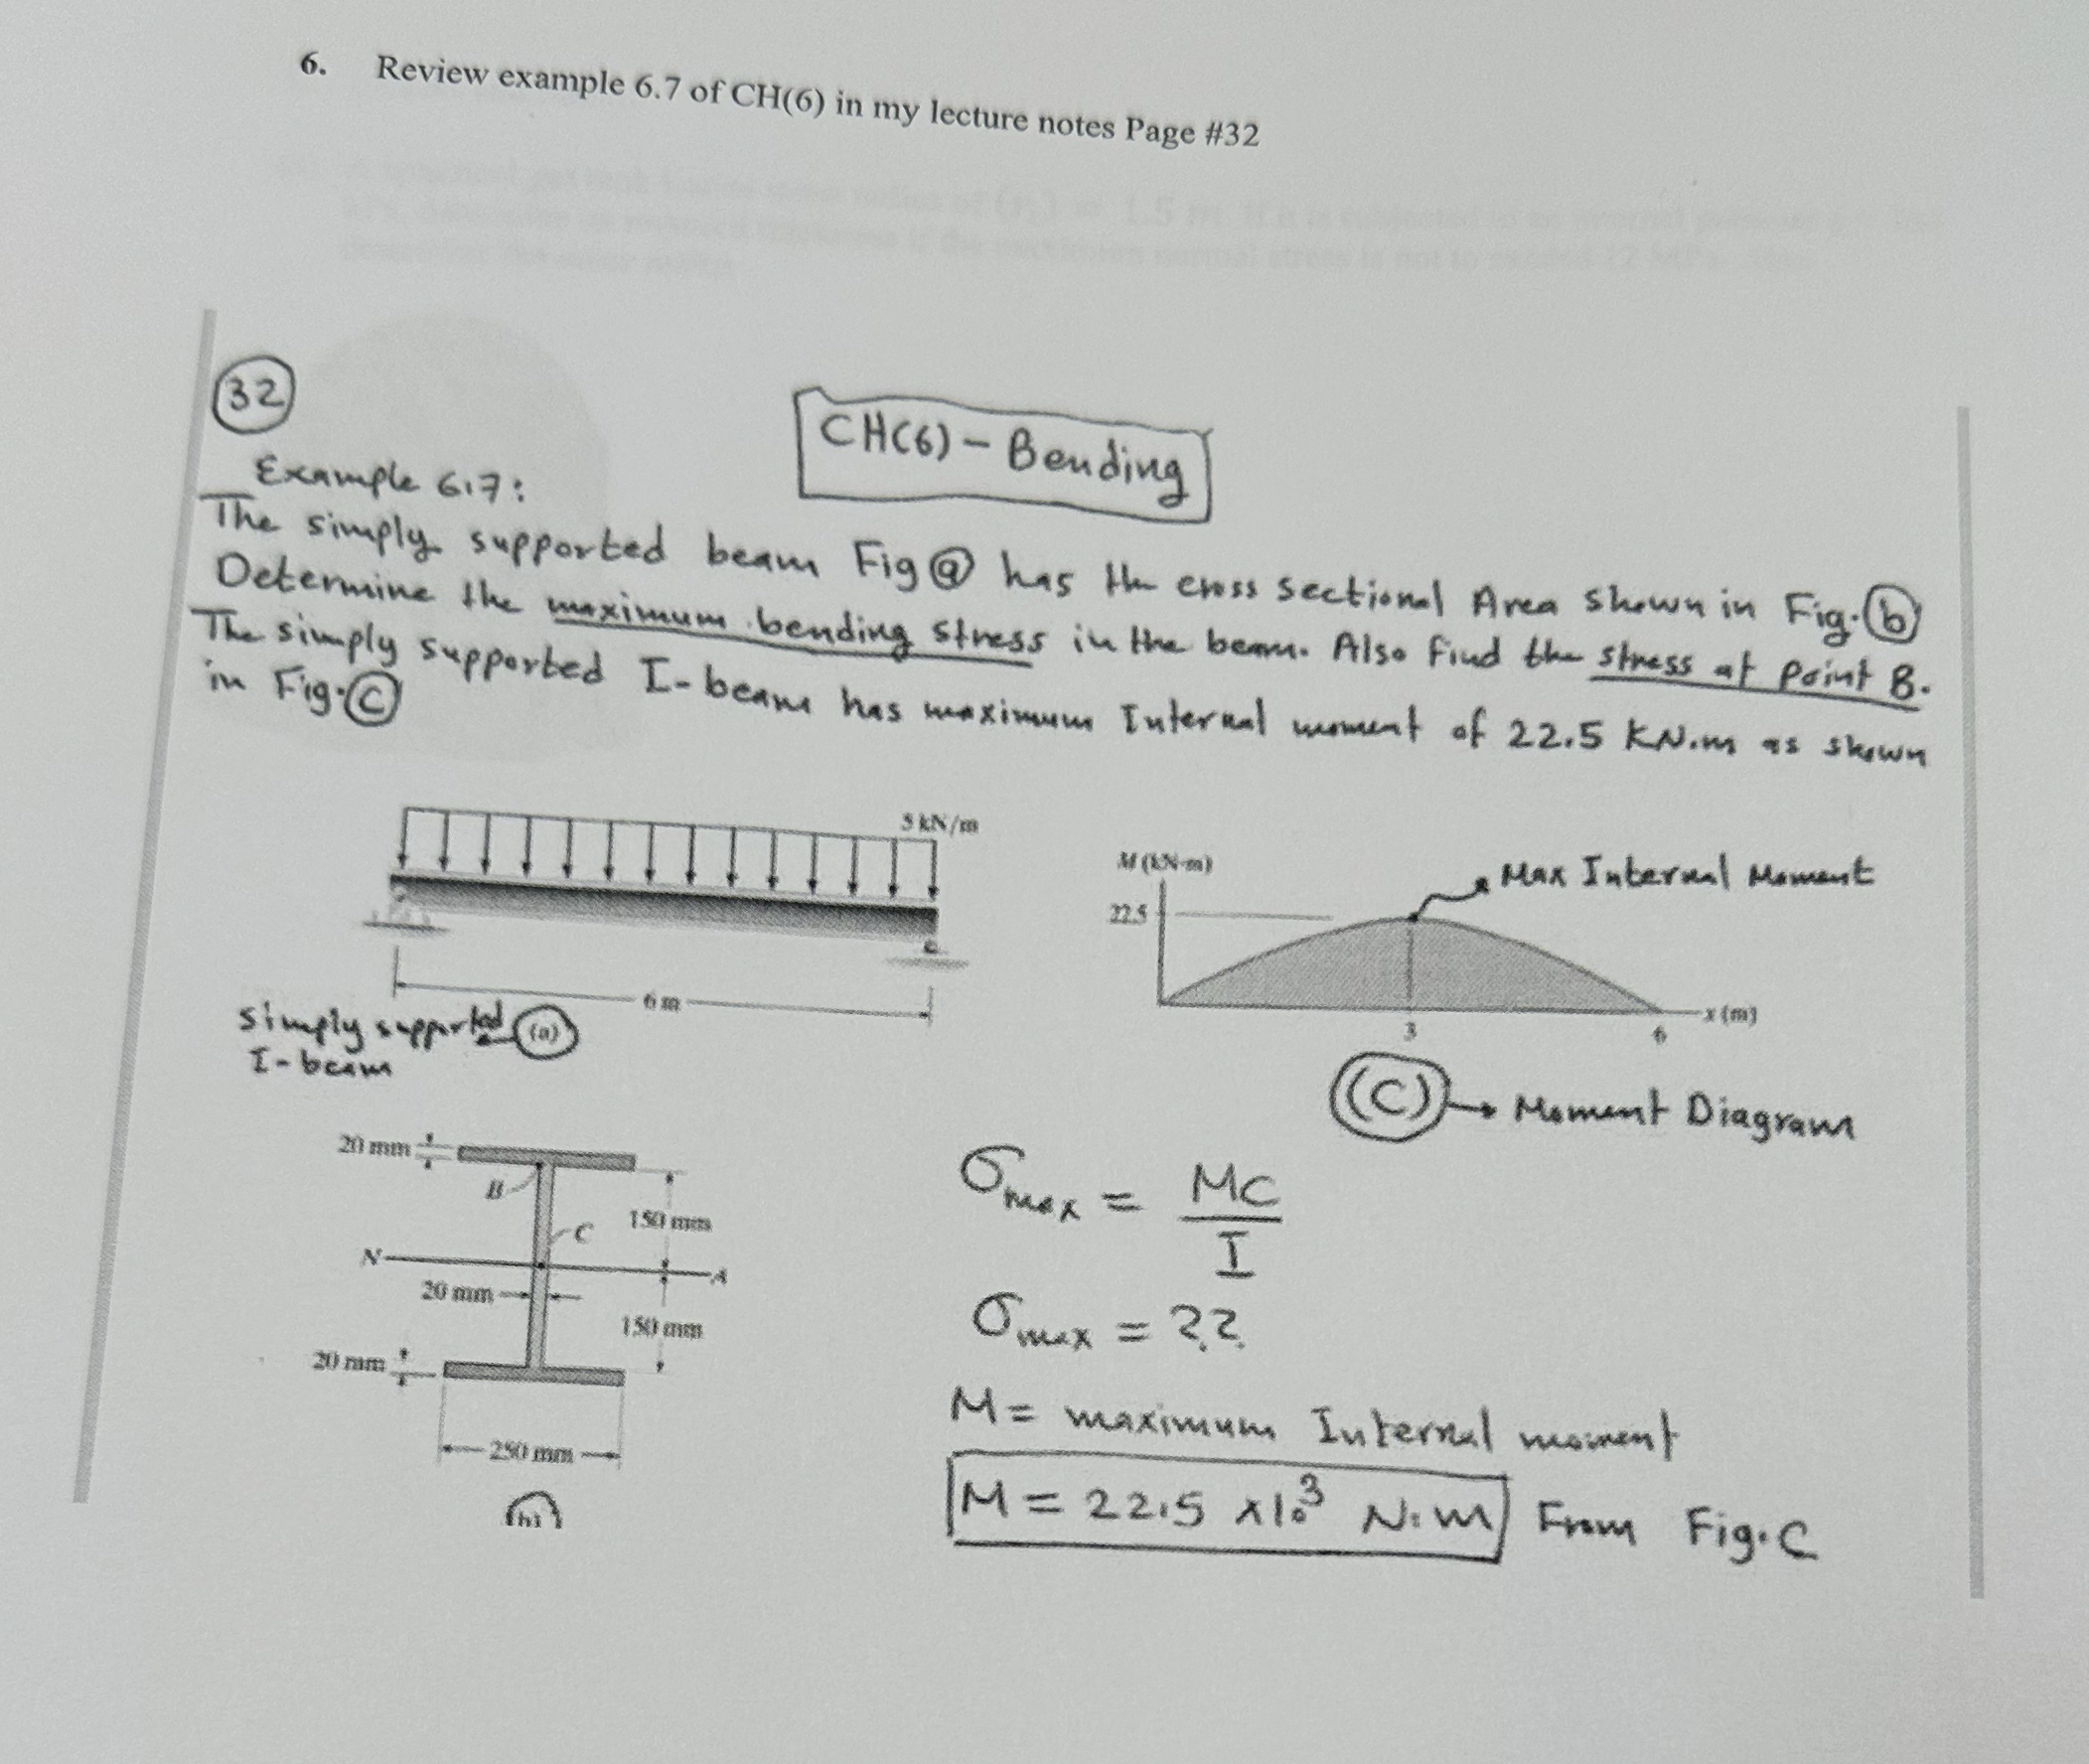 6. Review example 6.7 of CH(6) in my lecture notes Page #32
32
CH(6) - Bending
Example 6.7:
The simply supported beam Fig (a) has the cross sectional Area shown in Fig. (b)
Determine the maximum bending stress in the beam. Also find the stress at point B.
The simply supported I-beam has maximum Internal moment of 22.5 KN.m as shown
in Fig. (C)
5 kN/m
6 m
simply supported (a)
I-beam
M (kN·m)
Max Internal Moment
22.5
3
6
x (m)
(C) → Moment Diagram
20 mm
B
C
150 mm
N
A
20 mm
150 mm
20 mm
250 mm
(b)
σmax = MC / I
σmax = ??
M = maximum Internal moment
M = 22.5 x10³ N.m From Fig. C